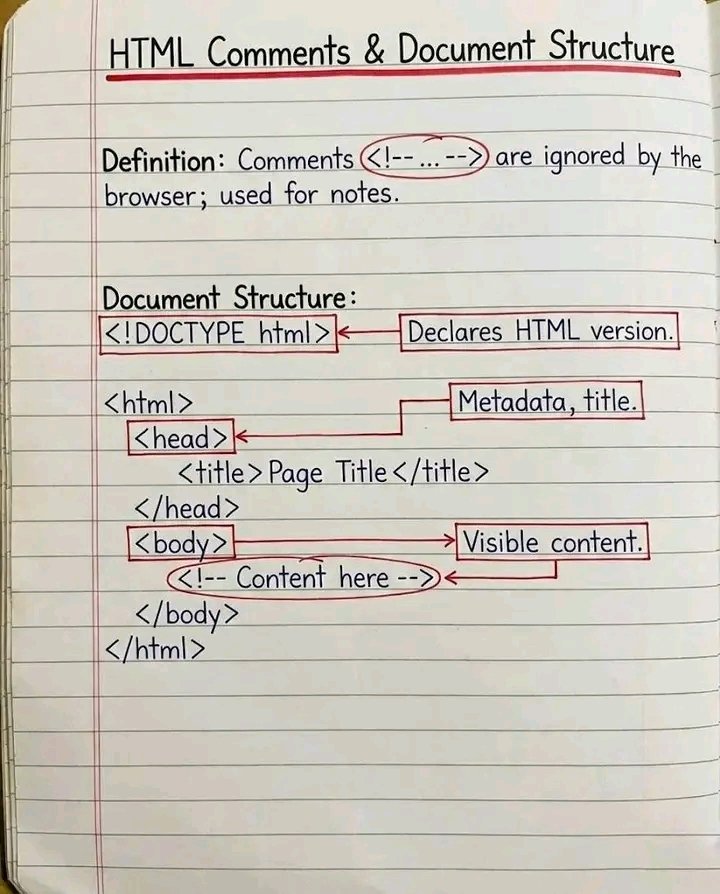 HTML Comments & Document Structure
Definition: Comments <!-- ... --> are ignored by the
browser; used for notes.
Document Structure:
<!DOCTYPE html> Declares HTML version.
<html> Metadata, title.
<head>
<title>Page Title</title>
</head>
<body> Visible content.
<!-- Content here -->
</body>
</html>